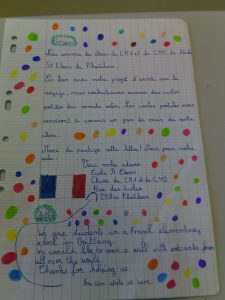 Nous sommes des élèves de CM1 et de CM2 de l'école
St Elouan de
En lien avec notre projet d'année sur le
voyage, nous souhaiterions recevoir des cartes
postales du monde entier. Ces cartes postales nous
serviront à couvrir un pan de mur de notre
classe.
Merci de partager cette lettre! Merci pour votre
aide.
Voici notre adresse:
École St Elouan
Classe de CM1 et de CM2
Rue des écoles
We are students in a French elementary
school in Brittany.
We would like to cover a wall with postcards from
all over the world.
Thanks for helping us.
You can write us here